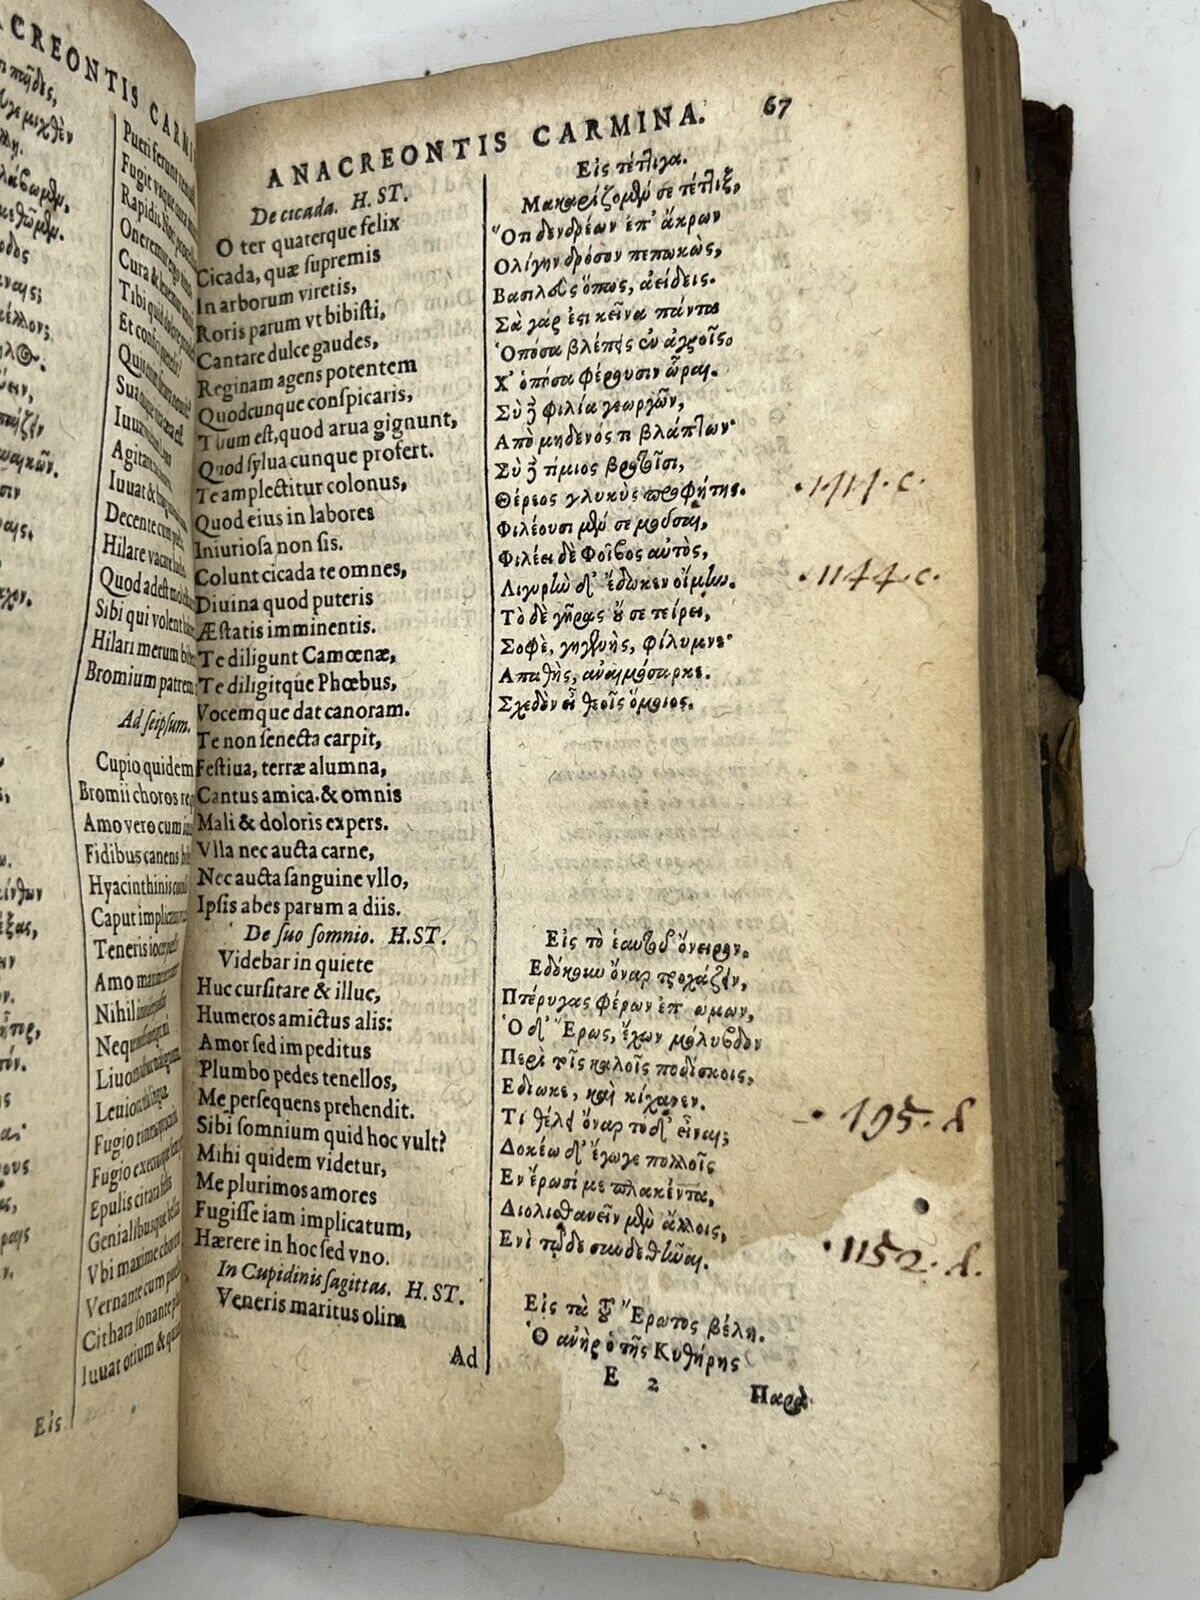 ANACREONTIS CARMINA. 67
De cicada. H. ST.
O ter quaterque felix
Cicada, quæ supremis
In arborum viretis,
Roris parum vt bibisti,
Cantare dulce gaudes,
Reginam agens potentem
Quodcunque conspicaris,
Tuum est, quod arua gignunt,
Quod sylua cunque profert.
Te amplectitur colonus,
Quod eius in labores
Iniuriosa non sis.
Colunt cicada te omnes,
Diuina quod puteris
Æstatis imminentis.
Te diligunt Camœnæ,
Te diligitque Phœbus,
Vocemque dat canoram.
Te non senecta carpit,
Festiua, terræ alumna,
Cantus amica. & omnis
Mali & doloris expers.
Vlla nec aucta carne,
Nec aucta sanguine vllo,
Ipsis abes parum a diis.
De suo somnio. H. ST.
Videbar in quiete
Huc cursitare & illuc,
Humeros amictus alis:
Amor sed impeditus
Plumbo pedes tenellos,
Me persequens prehendit.
Sibi somnium quid hoc vult?
Mihi quidem videtur,
Me plurimos amores
Fugisse iam implicatum,
Hærere in hoc sed vno.
In Cupidinis sagittas. H. ST.
Veneris maritus olim
Ad
Εἰς τέτλιγα.
Μακαρίζομεν σε τέτλιξ,
Ὅτι δενδρέων ἐπ' ἄκρων
Ολίγην δρόσον πεπωκὼς,
Βασιλεὺς ὅπως, ἀείδεις.
Σὰ γάρ ἐστι κεῖνα πάντα
Ὁπόσα βλέπεις ἐν ἀγροῖς.
Χ' ὁπόσα φέρουσιν ὧραι.
Σὺ δὲ φιλία γεωργῶν,
Απὸ μηδενός τι βλάπτων·
Σὺ δὲ τίμιος βροτοῖσι,
Θέρεος γλυκὺς προφήτης. 1411. c.
Φιλέουσι μέν σε μοῦσαι,
Φιλέει δὲ Φοῖβος αὐτὸς,
Λιγυρὴν δ' ἔδωκεν οἴμην. 1144. c.
Τὸ δὲ γῆρας οὔ σε τείρει,
Σοφὲ, γηγενὴς, φίλυμνε·
Απαθὴς, ἀναιμόσαρκε.
Σχεδὸν εἶ θεοῖς ὅμοιος.
Εἰς τὸ ἑαυτοῦ ὄνειρον.
Εδόκουν ὄναρ τροχάζειν,
Πτέρυγας φέρων ἐπ' ὤμων,
Ὁ δ' Ἔρως, ἔχων μόλυβδον
Περὶ τοῖς καλοῖς ποδίσκοις,
Εδίωκε, καὶ κίχανεν.
Τί θέλει ὄναρ τόδ' εἶναι; 195. d
Δοκέω δ' ἔγωγε πολλοῖς
Εν ἔρωσί με πλακέντα,
Διολισθάνειν μὲν ἄλλοις,
Ενὶ τῷδε συνδεθῆναι. 1152. d.
Εἰς τὰ τοῦ Ἔρωτος βέλη.
Ὁ ἀνὴρ ὁ τῆς Κυθήρης
E 2 Παρὰ
ACREONTIS CARMI
Ad seipsum.
Cupio quidem
Bromii choros
Amo vero cum
Fidibus canens
Hyacinthinis
Caput implica
Teneris ioce
Amo
Nihil
Neque
Εἰς